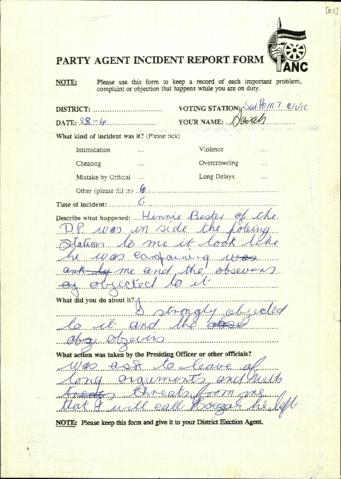 PARTY AGENT INCIDENT REPORT FORM
ANC
NOTE: Please use this form to keep a record of each important problem, complaint or objection that happens while you are on duty.
DISTRICT: VOTING STATION: Civic
DATE: 28-4 YOUR NAME: Sarah
What kind of incident was it? (Please tick)
Intimidation ... Violence ...
Cheating ... Overcrowding ...
Mistake by Official ... Long Delays ...
Other (please fill in) 6
Time of incident: 6
Describe what happened: Hennie Bester of the
D.P. was in side the poleing
Station to me it look like
he was
me and the observers
objected to it
What did you do about it? I
strongly objected
to it and the
observers
What action was taken by the Presiding Officer or other officials?
was ask to leave af
long arguments and with
threats from me
that I will call he left
NOTE: Please keep this form and give it to your District Election Agent.